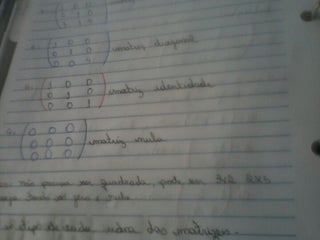 1 0 0
1 1 0
1 1 1
1 0 0
0 1 0 matriz diagonal
0 0 4
1 0 0
0 1 0 matriz identidade
0 0 1
0 0 0
0 0 0 matriz nula
0 0 0
não precisa ser quadrada, pode ser 3x2 2x5
zero e nula
tipo de cada uma das matrizes.